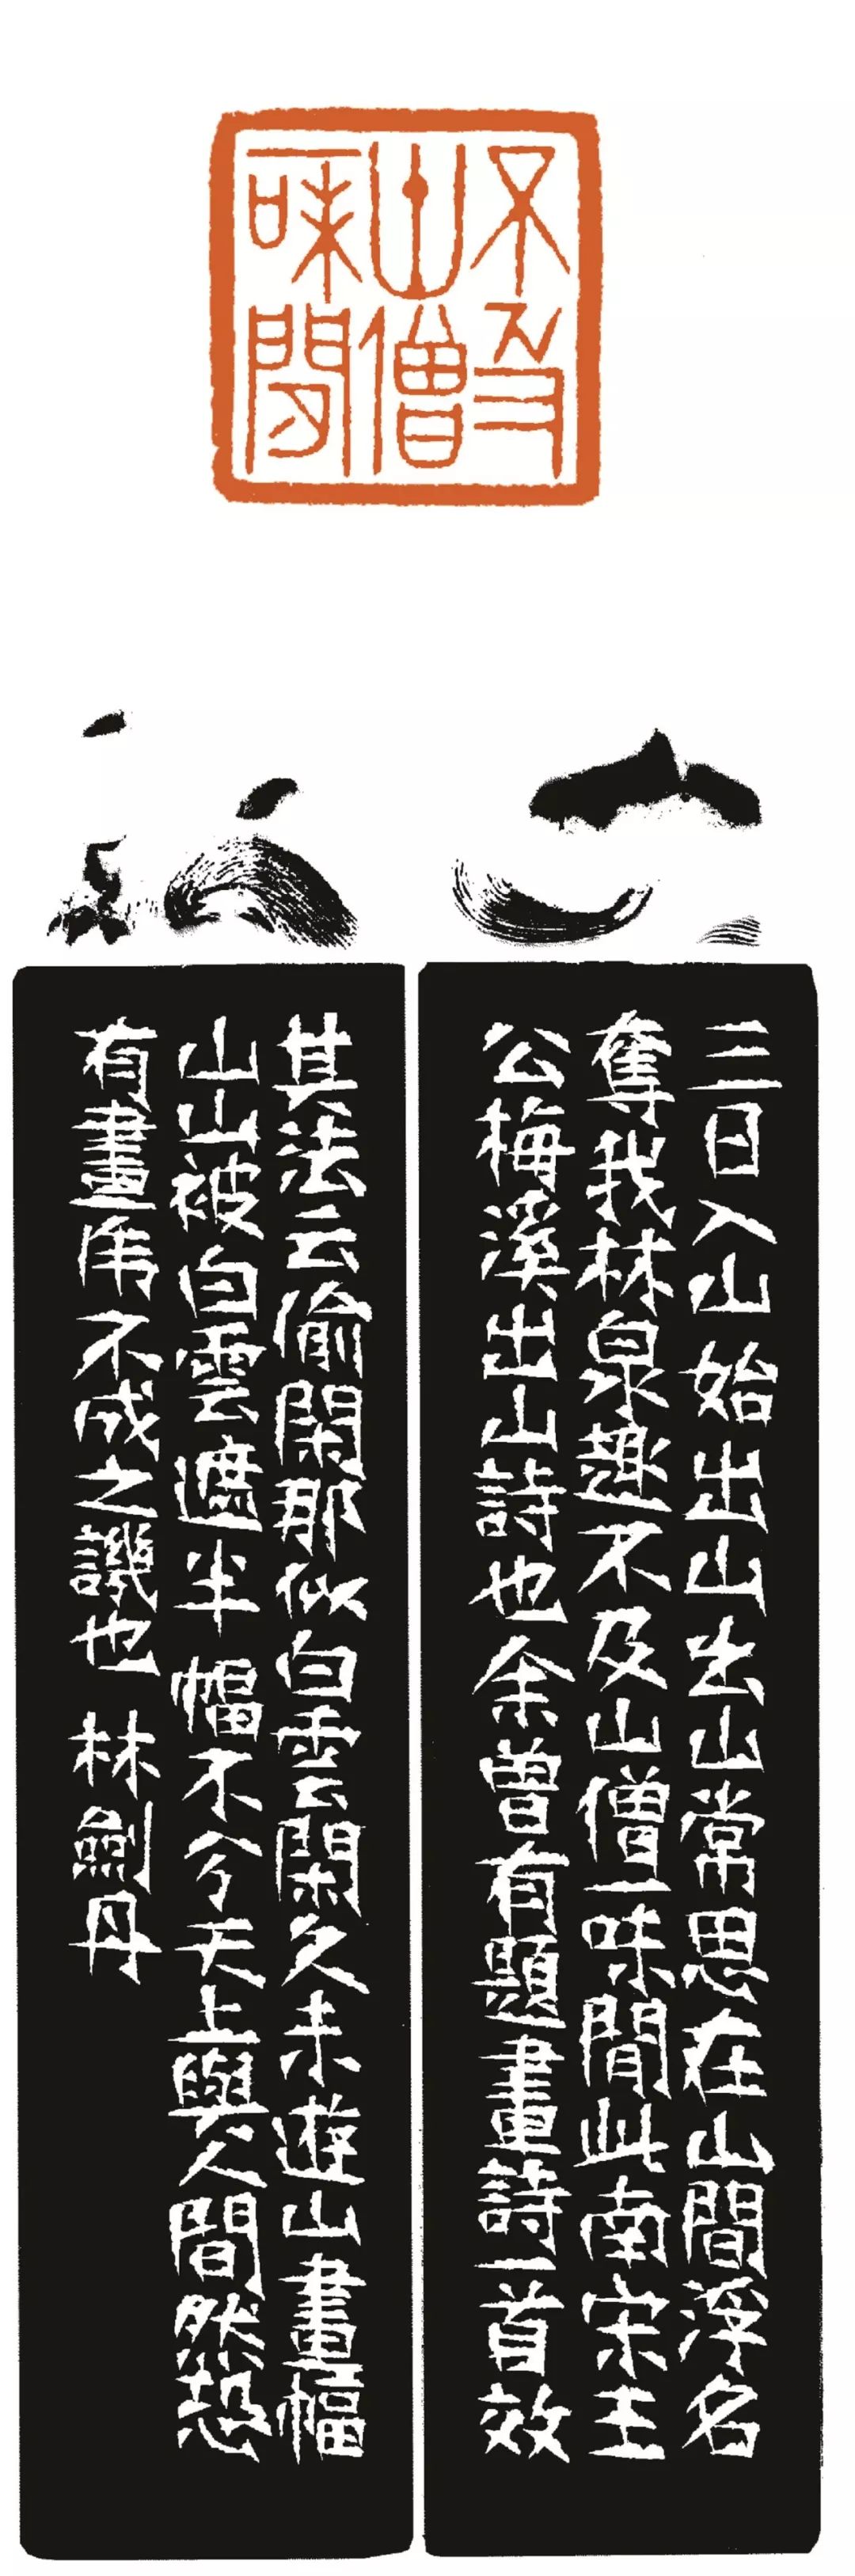 不及
山僧
一味閒
三日入山始出山出山常思在山間浮名
奪我林泉趣不及山僧一味閒此南宋王
公梅溪出山詩也余曾有題畫詩一首效
其法云偷閑那似白雲閑久未遊山畫幅
山山被白雲遮半幅不分天上與人間然恐
有畫虎不成之譏也 林劍丹